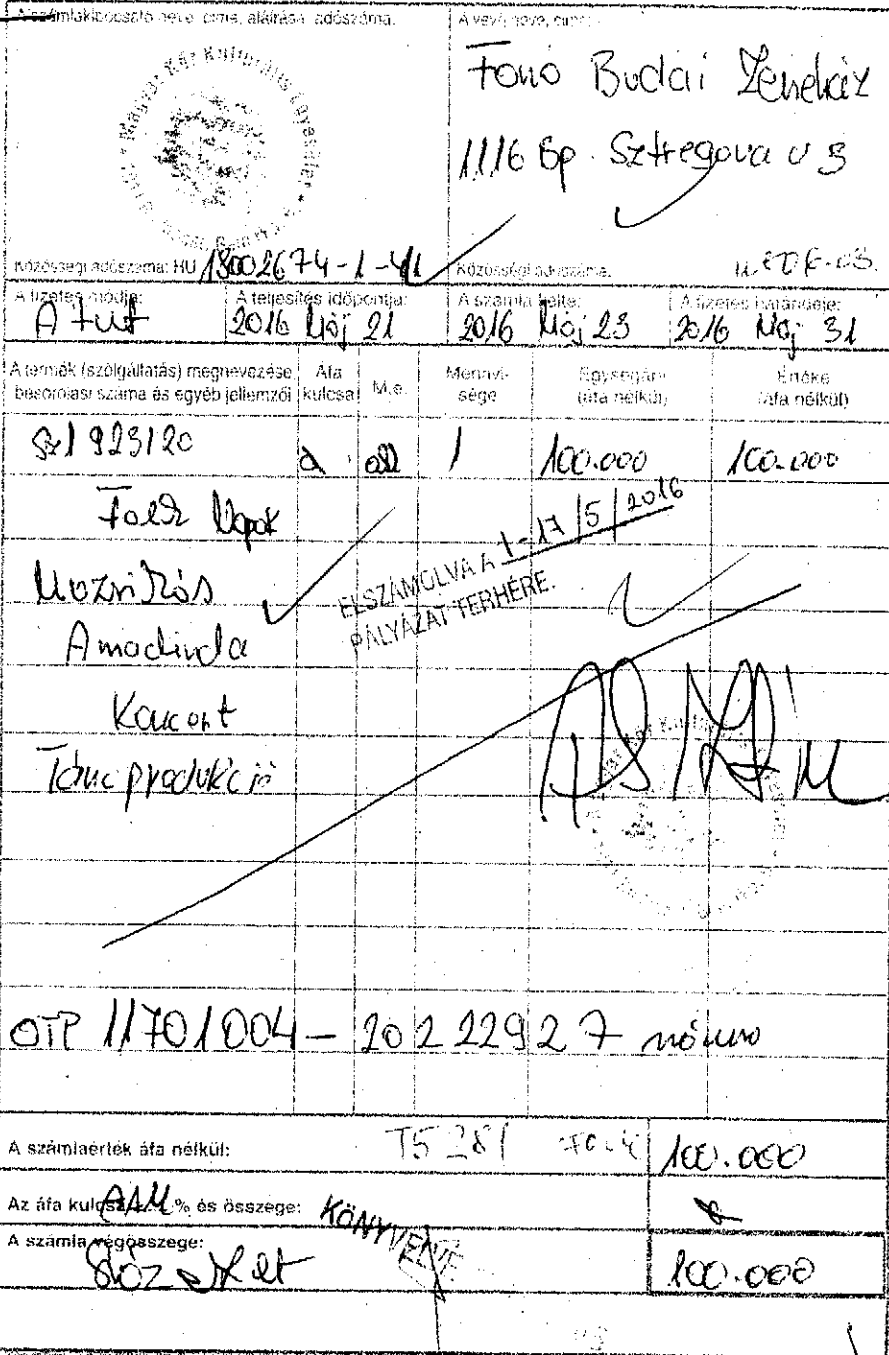 A számlakibocsátó neve, címe, aláírása, adószáma:
Magyar Kár Kulturális Egyesület
Közösségi adószáma: HU 18002674-1-41
A vevő neve, címe:
Fonó Budai Zeneház
1116 Bp. Sztregova u 3
Közösségi adószáma:
A fizetés módja:
A tut
A teljesítés időpontja:
2016 Máj 21
A számla kelte:
2016 Máj 23
A fizetés határideje:
2016 Máj 31
A termék (szolgáltatás) megnevezése besorolási száma és egyéb jellemzői
Áfa kulcsa
M.e.
Mennyisége
Egységár (áfa nélkül)
Értéke (áfa nélkül)
SZJ 923120
1
100.000
100.000
Folk
Muzsikás
Amadinda
Koncert
Táncprodukció
ELSZÁMOLVA A 1-17/5/2016
PÁLYÁZAT TERHÉRE.
OTP 11701004-20222927
A számlaérték áfa nélkül:
100.000
Az áfa kulcsa AAM % és összege:
KÖNYVELVE
A számla végösszege:
100.000